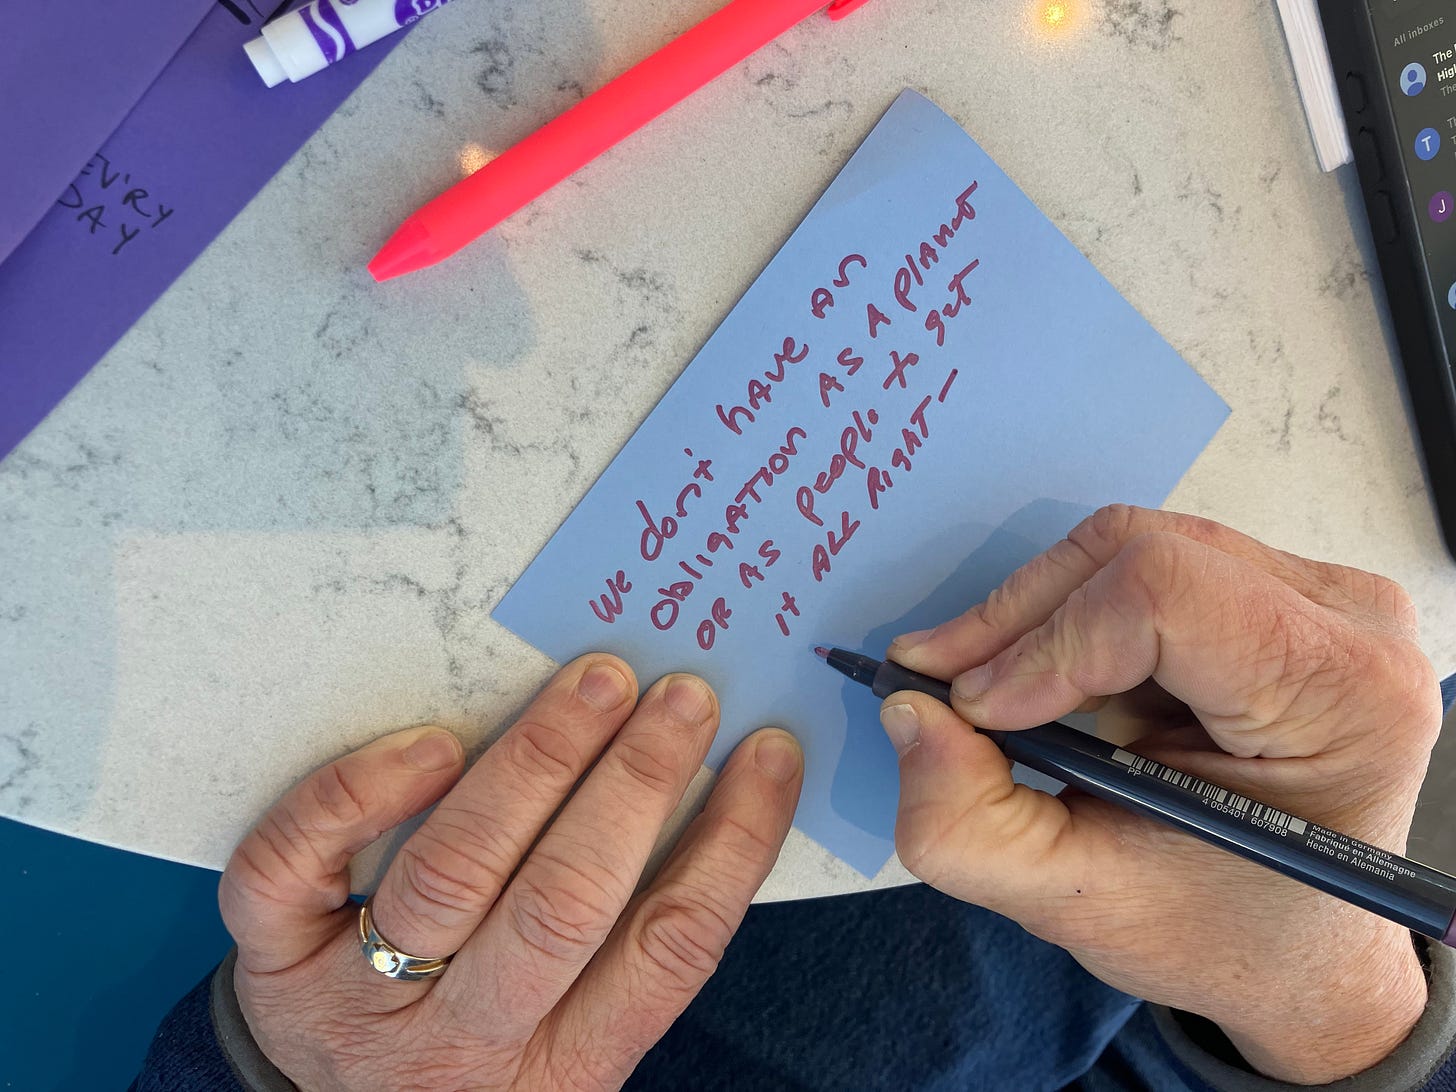 We don't have an
obligation as a planet
or as people to get
it all right —
EV'RY
DAY
All inboxes
The
High
The
T
J
PP
4 005401 607908
Made in Germany
Fabriqué en Allemagne
Hecho en Alemania